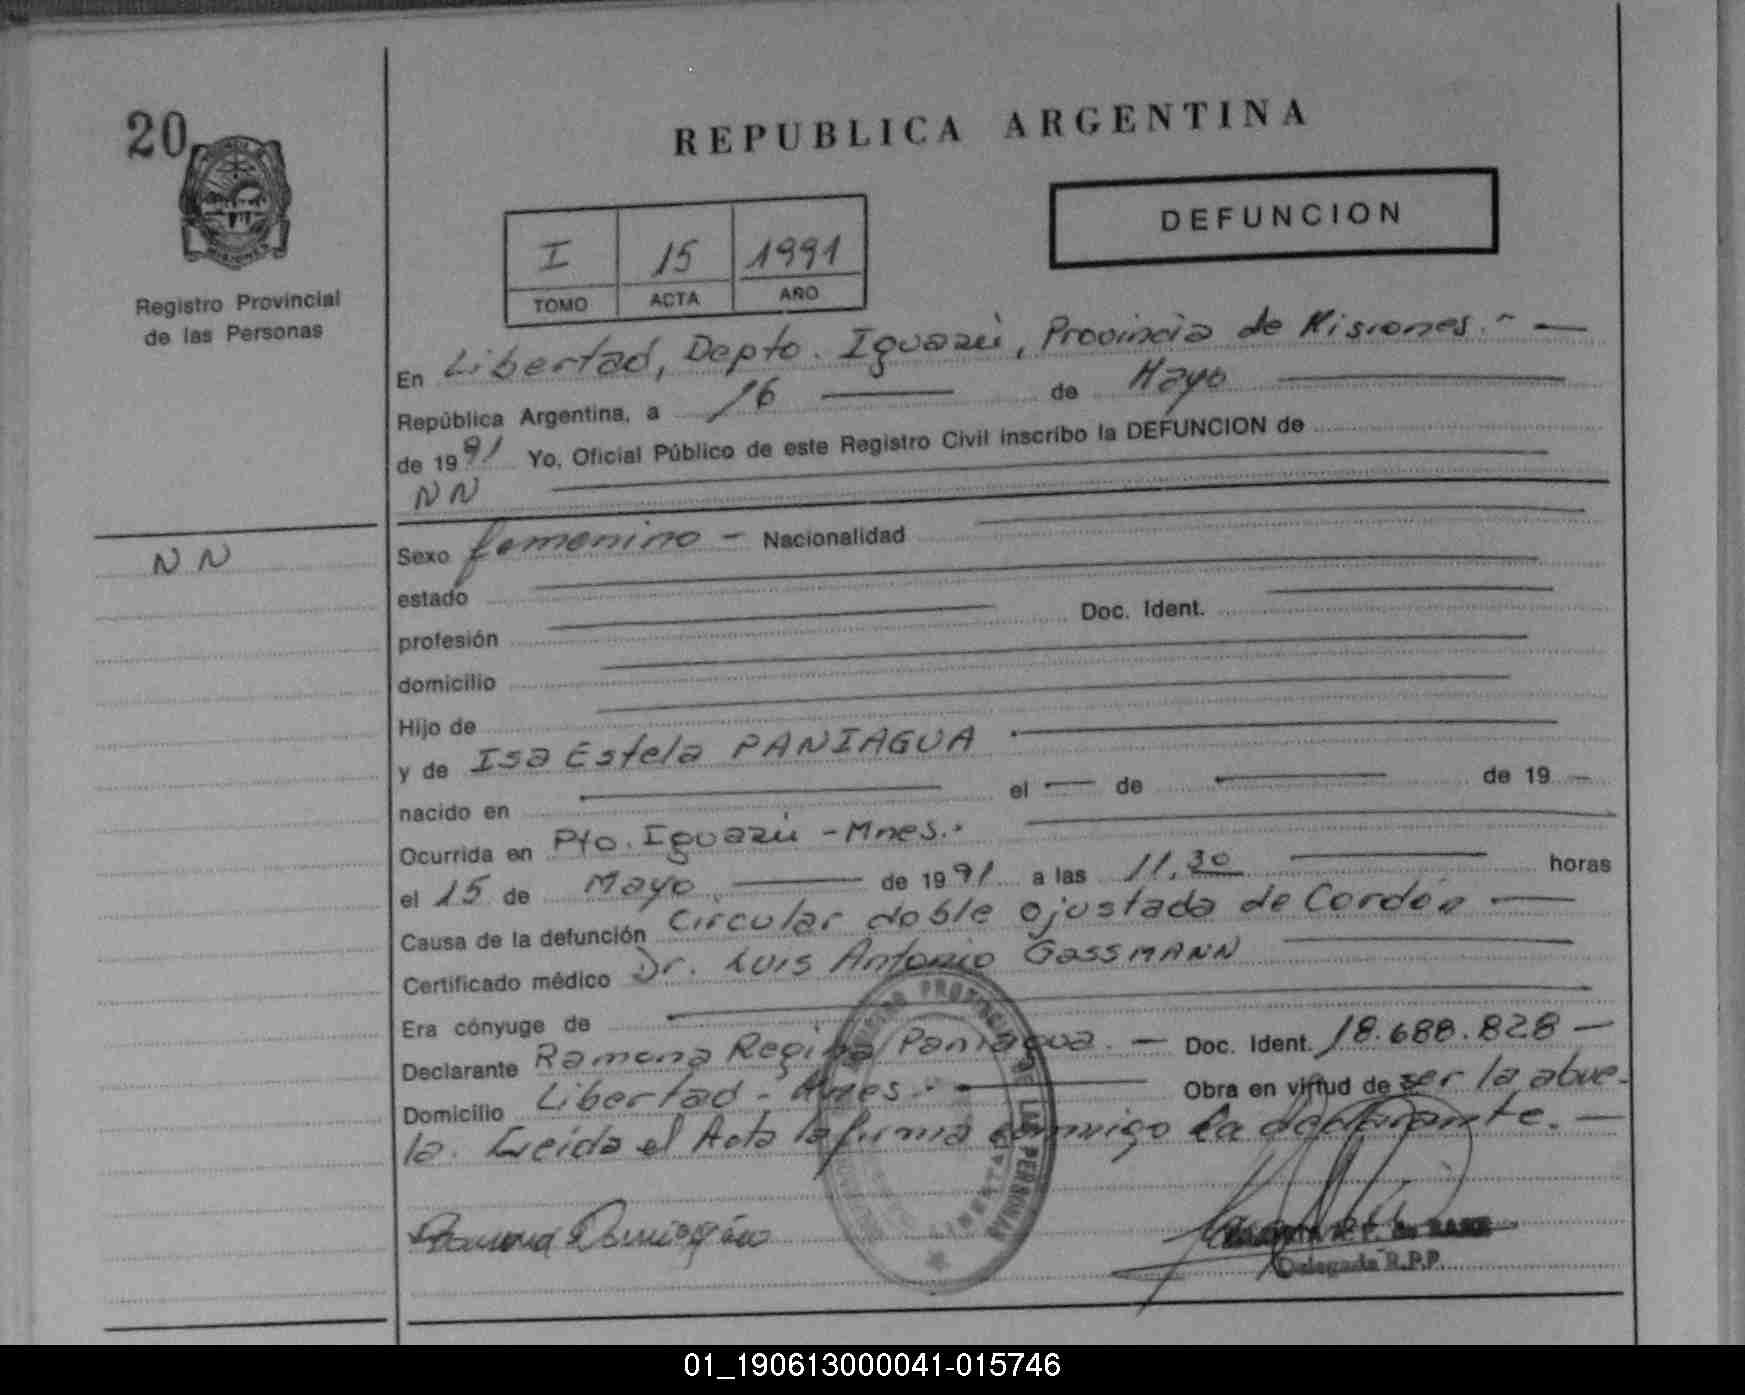 20
REPUBLICA ARGENTINA
DEFUNCION
I 15 1991
TOMO ACTA AÑO
Registro Provincial
de las Personas
En Libertad, Depto. Iguazú, Provincia de Misiones.-
República Argentina, a 16 de Mayo
de 1991 Yo, Oficial Público de este Registro Civil inscribo la DEFUNCION de
NN
NN
Sexo femenino - Nacionalidad
estado
profesión Doc. Ident.
domicilio
Hijo de
y de Isa Estela PANIAGUA
nacido en el de de 19
Ocurrida en Pto. Iguazú - Mnes.-
el 15 de Mayo de 1991 a las 11,30 horas
Causa de la defunción Circular doble ajustada de Cordón
Certificado médico Dr. Luis Antonio GASSMANN
Era cónyuge de
Declarante Ramona Regina Paniagua. - Doc. Ident. 18.688.828 -
Domicilio Libertad - Mnes.- Obra en virtud de ser la abue-
la. Leida el Acta la firma conmigo la declarante. -
REGISTRO PROVINCIAL DE LAS PERSONAS
Ramona
Delegada R.P.P.
01_190613000041-015746